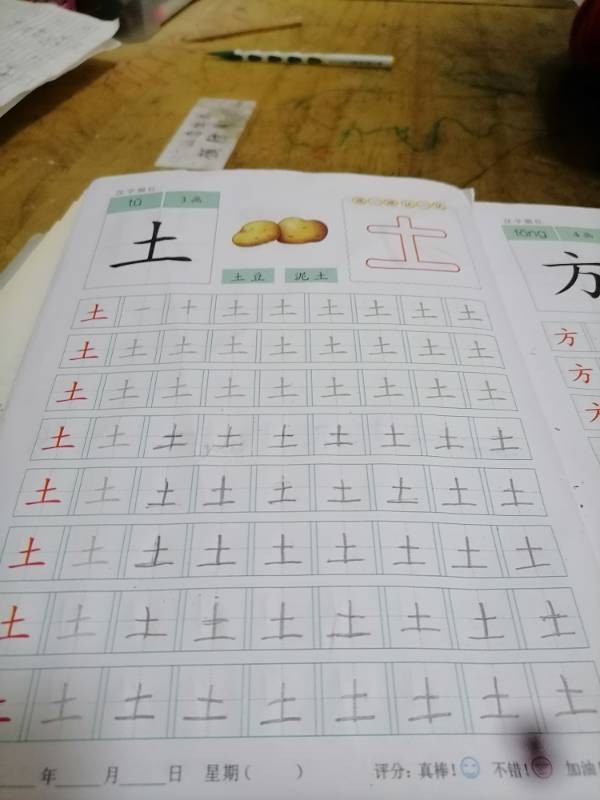 tǔ 3画
土
土豆 泥土
土
土 一 十 土 土 土 土 土 土
土 土 土 土 土 土 土 土 土
土 土 土 土 土 土 土 土 土
土 土 土 土 土 土 土 土 土
土 土 土 土 土 土 土 土 土
土 土 土 土 土 土 土 土 土
土 土 土 土 土 土 土 土 土
土 土 土 土 土 土 土 土
年 月 日 星期( ) 评分:真棒! 不错! 加油!
fāng 4画
方
方
方